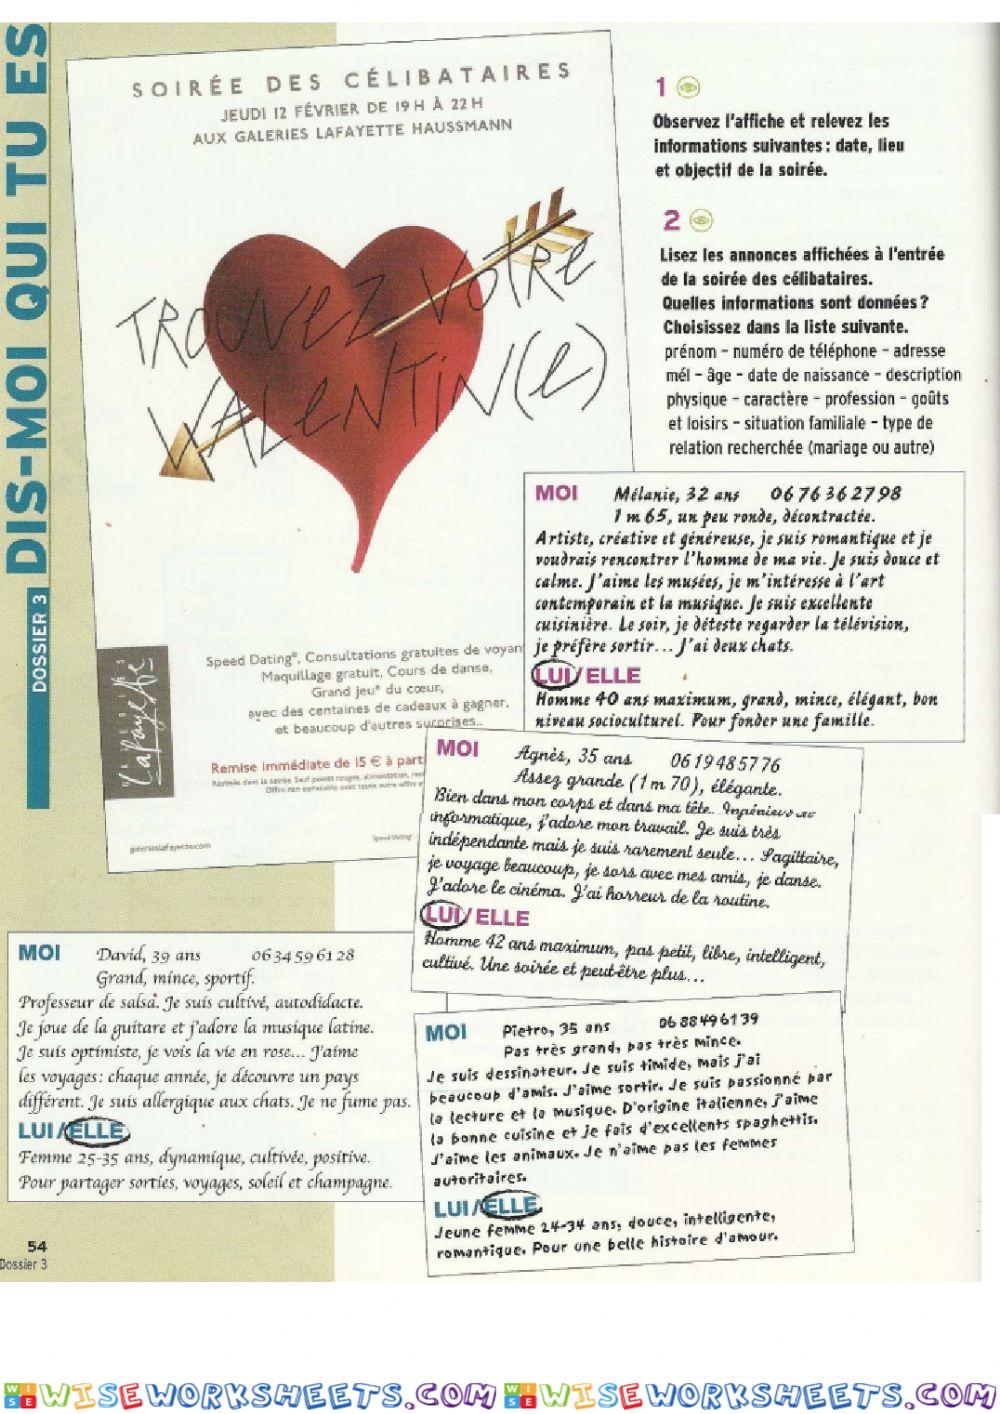 DIS-MOI QUI TU ES
DOSSIER 3
SOIRÉE DES CÉLIBATAIRES
JEUDI 12 FÉVRIER DE 19H À 22H
AUX GALERIES LAFAYETTE HAUSSMANN
TROUVEZ VOTRE
VALENTIN(e)
Lafayette
Speed Dating®, Consultations gratuites de voyan
Maquillage gratuit, Cours de danse,
Grand jeu* du cœur,
avec des centaines de cadeaux à gagner,
et beaucoup d'autres surprises...
Remise immédiate de 15 € à parti
galerieslafayette.com
Speed Dating
1
Observez l'affiche et relevez les
informations suivantes : date, lieu
et objectif de la soirée.
2
Lisez les annonces affichées à l'entrée
de la soirée des célibataires.
Quelles informations sont données ?
Choisissez dans la liste suivante.
prénom – numéro de téléphone – adresse
mél – âge – date de naissance – description
physique – caractère – profession – goûts
et loisirs – situation familiale – type de
relation recherchée (mariage ou autre)
MOI Mélanie, 32 ans 06 76 36 27 98
1 m 65, un peu ronde, décontractée.
Artiste, créative et généreuse, je suis romantique et je
voudrais rencontrer l'homme de ma vie. Je suis douce et
calme. J'aime les musées, je m'intéresse à l'art
contemporain et la musique. Je suis excellente
cuisinière. Le soir, je déteste regarder la télévision,
je préfère sortir... J'ai deux chats.
LUI/ELLE
Homme 40 ans maximum, grand, mince, élégant, bon
niveau socioculturel. Pour fonder une famille.
MOI Agnès, 35 ans 06 19 48 57 76
Assez grande (1 m 70), élégante.
Bien dans mon corps et dans ma tête.
informatique, j'adore mon travail. Je suis très
indépendante mais je suis rarement seule... Sagittaire,
je voyage beaucoup, je sors avec mes amis, je danse.
J'adore le cinéma. J'ai horreur de la routine.
LUI/ELLE
Homme 42 ans maximum, pas petit, libre, intelligent,
cultivé. Une soirée et peut-être plus...
MOI David, 39 ans 06 34 59 61 28
Grand, mince, sportif.
Professeur de salsa. Je suis cultivé, autodidacte.
Je joue de la guitare et j'adore la musique latine.
Je suis optimiste, je vois la vie en rose... J'aime
les voyages : chaque année, je découvre un pays
différent. Je suis allergique aux chats. Je ne fume pas.
LUI/ELLE
Femme 25-35 ans, dynamique, cultivée, positive.
Pour partager sorties, voyages, soleil et champagne.
MOI Pietro, 35 ans 06 88 49 61 39
Pas très grand, pas très mince.
Je suis dessinateur. Je suis timide, mais j'ai
beaucoup d'amis. J'aime sortir. Je suis passionné par
la lecture et la musique. D'origine italienne, j'aime
la bonne cuisine et je fais d'excellents spaghettis.
J'aime les animaux. Je n'aime pas les femmes
autoritaires.
LUI/ELLE
Jeune femme 24-34 ans, douce, intelligente,
romantique. Pour une belle histoire d'amour.
54
Dossier 3
WISEWORKSHEETS.COM WISEWORKSHEETS.COM